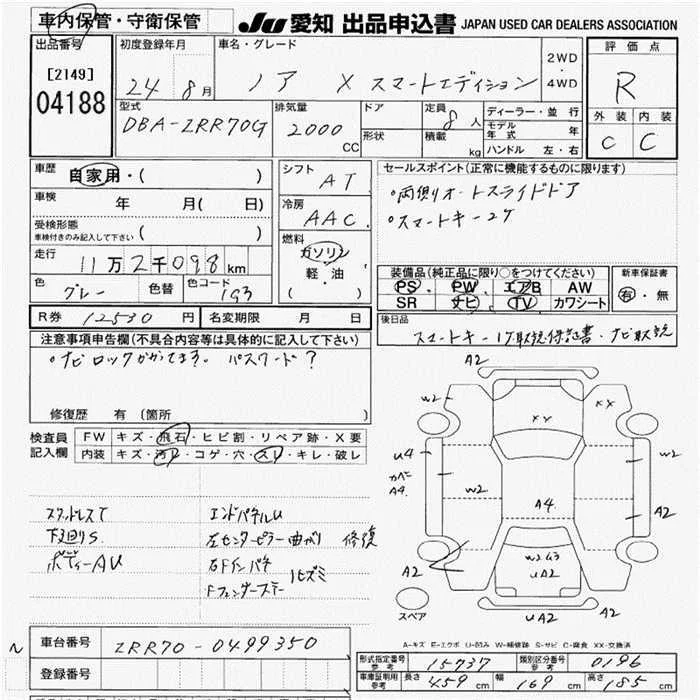 車内保管・守衛保管
JU 愛知 出品申込書 JAPAN USED CAR DEALERS ASSOCIATION
出品番号 初度登録年月 車名・グレード 評価点
[2149]
04188
24年 8月 ノア X スマートエディション 2WD・4WD R
型式 排気量 ドア 定員 8人 ディーラー・並行 外装 内装
DBA-ZRR70G 2000 CC 形状 積載 kg モデル年式 年 C C
ハンドル 左・右
車歴 自家用・( ) シフト AT セールスポイント(正常に機能するものに限ります)
車検 年 月( 日) 冷房 AAC ・両側オートスライドドア
受検形態 ( ) ・スマートキー2ケ
車検付きのみ記入して下さい
走行 11万2千098km 燃料 ガソリン 軽・油 ( )
色 グレー 色替 色コード 1G3
装備品(純正品に限り○をつけてください) 新車保証書
PS PW エアB AW 有・無
SR ナビ TV カワシート
R券 12530円 名変期限 月 日
後日品 スマートキー1ケ 取説 保証書・ナビ取説
注意事項申告欄(不具合内容等は具体的に記入して下さい)
・ナビロックかかってます。 パスワード?
修復歴 有 (箇所 )
検査員記入欄 FW キズ・飛石・ヒビ割・リペア跡・X要
内装 キズ・汚レ・コゲ・穴・スレ・キレ・破レ
スタッドレスT エンドパネルU
下廻りS 左センターピラー曲がり 修復
ボディーAU 右Fインパネ
Fフェンダーステー ヒズミ
A2
W2 XX
XY
U4 W2
カベニ
A4
W2 A4
A2
W2 G3
A2 UA2 A2
スペア UA2 A2
A-キズ E-エクボ U-凹ミ W-補修跡 S-サビ C-腐食 XX-交換済
車台番号 ZRR70-0499350
登録番号
形式指定番号 参考 15737 類別区分番号 参考 0196
車庫証明用 参考 長さ 459cm 幅 169cm 高さ 185cm